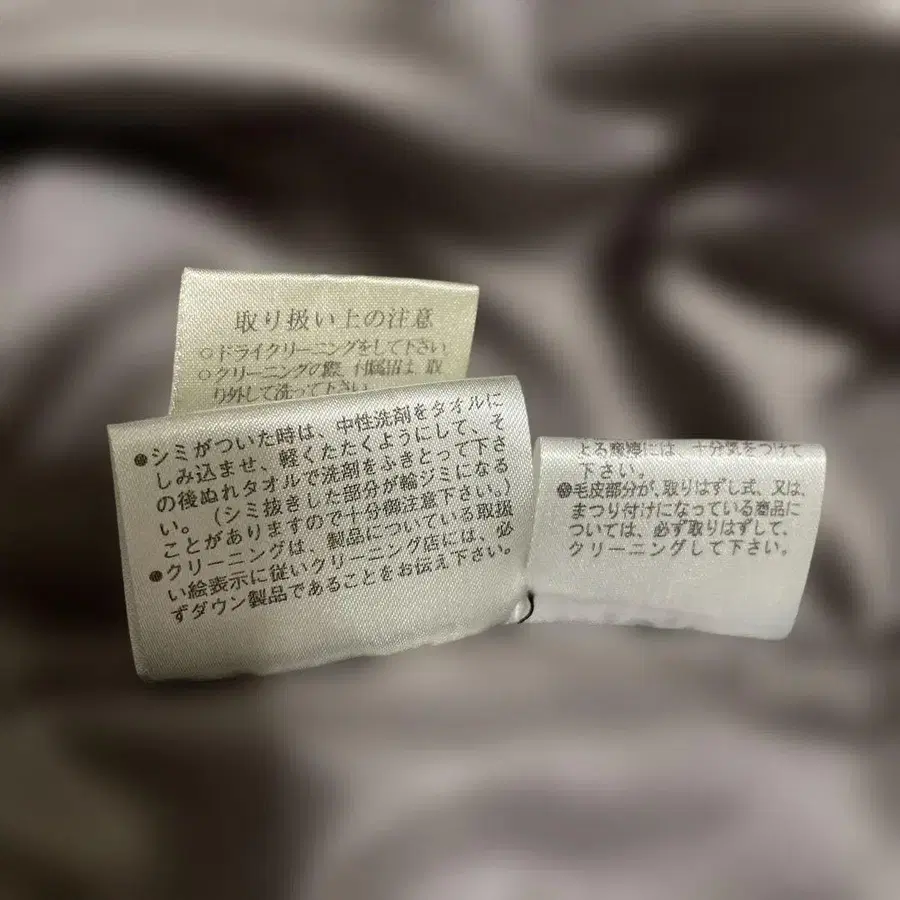 取り扱い上の注意
○ドライクリーニングをして下さい
○クリーニングの際、付属品は、取
り外して洗って下さい
●シミがついた時は、中性洗剤をタオルに
しみ込ませ、軽くたたくようにして、そ
の後ぬれタオルで洗剤をふきとって下さ
い。(シミ抜きした部分が輪ジミになる
ことがありますので十分御注意下さい。)
●クリーニングは、製品についている取扱
い絵表示に従いクリーニング店には、必
ずダウン製品であることをお伝え下さい。
には、十分気をつけて
下さい。
●毛皮部分が、取りはずし式、又は、
まつり付けになっている商品に
ついては、必ず取りはずして、
クリーニングして下さい。